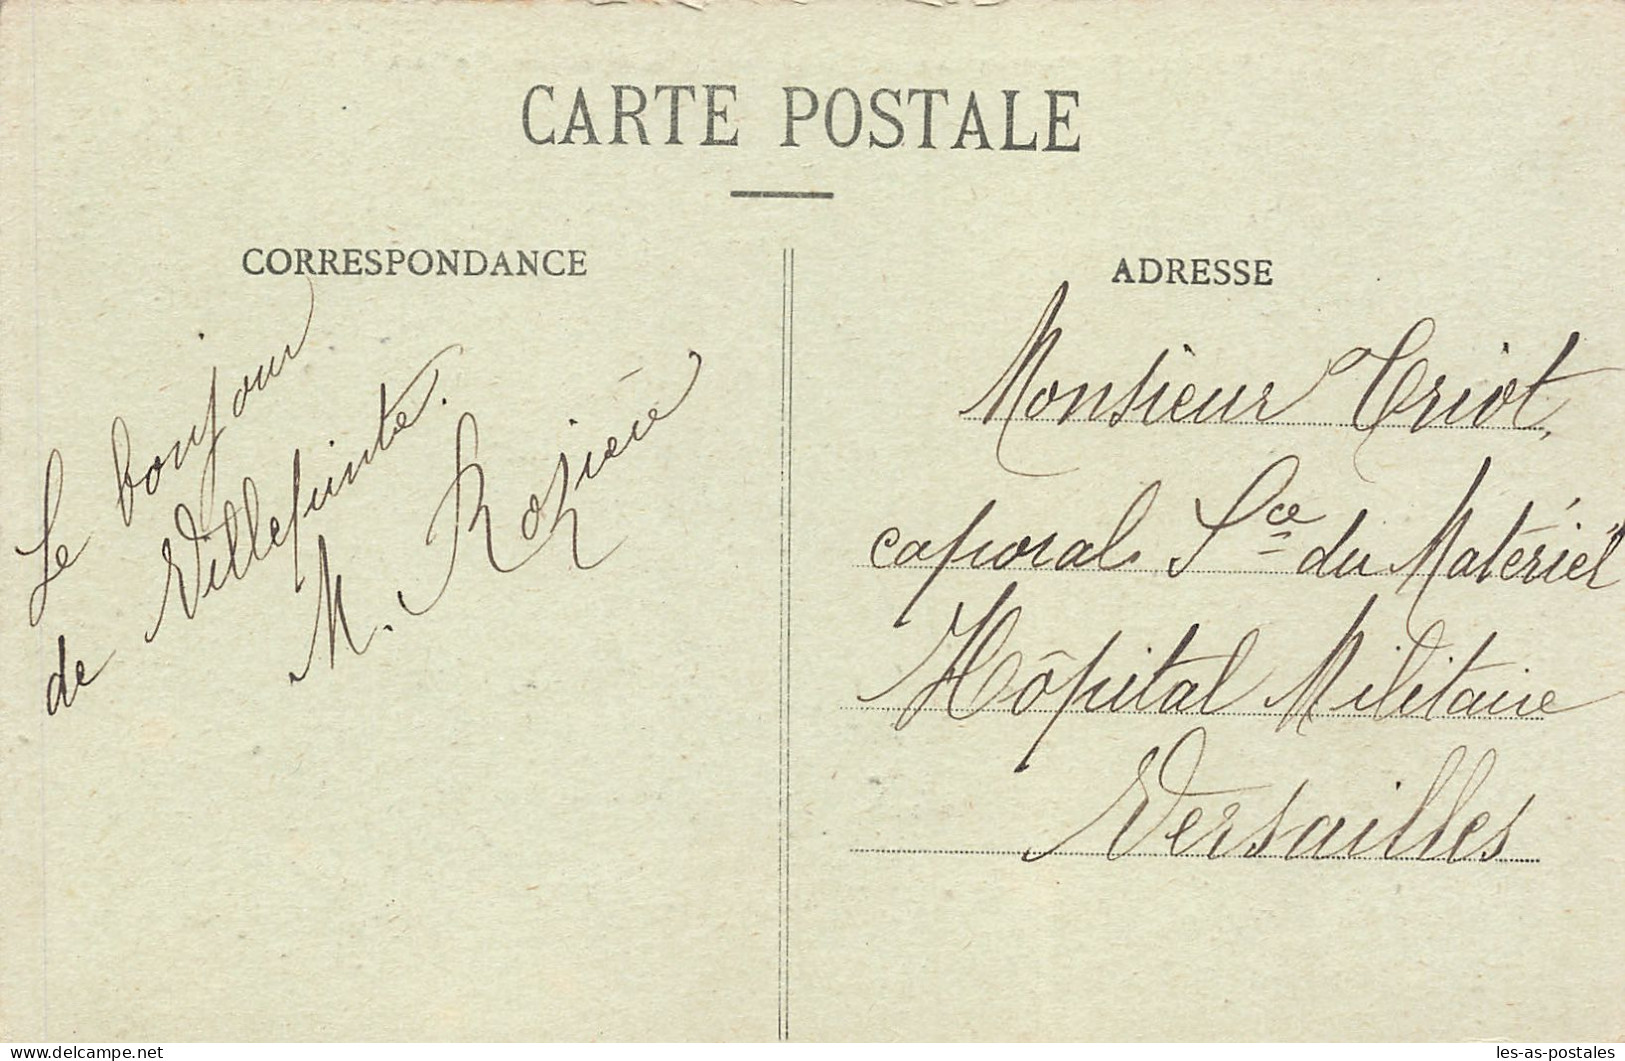 CARTE POSTALE
CORRESPONDANCE
Le bonjour
de Villepinte.
M. Rozière
ADRESSE
Monsieur Triot,
caporal Sce du Matériel
Hôpital Militaire
Versailles
delcampe.net
les-as-postales